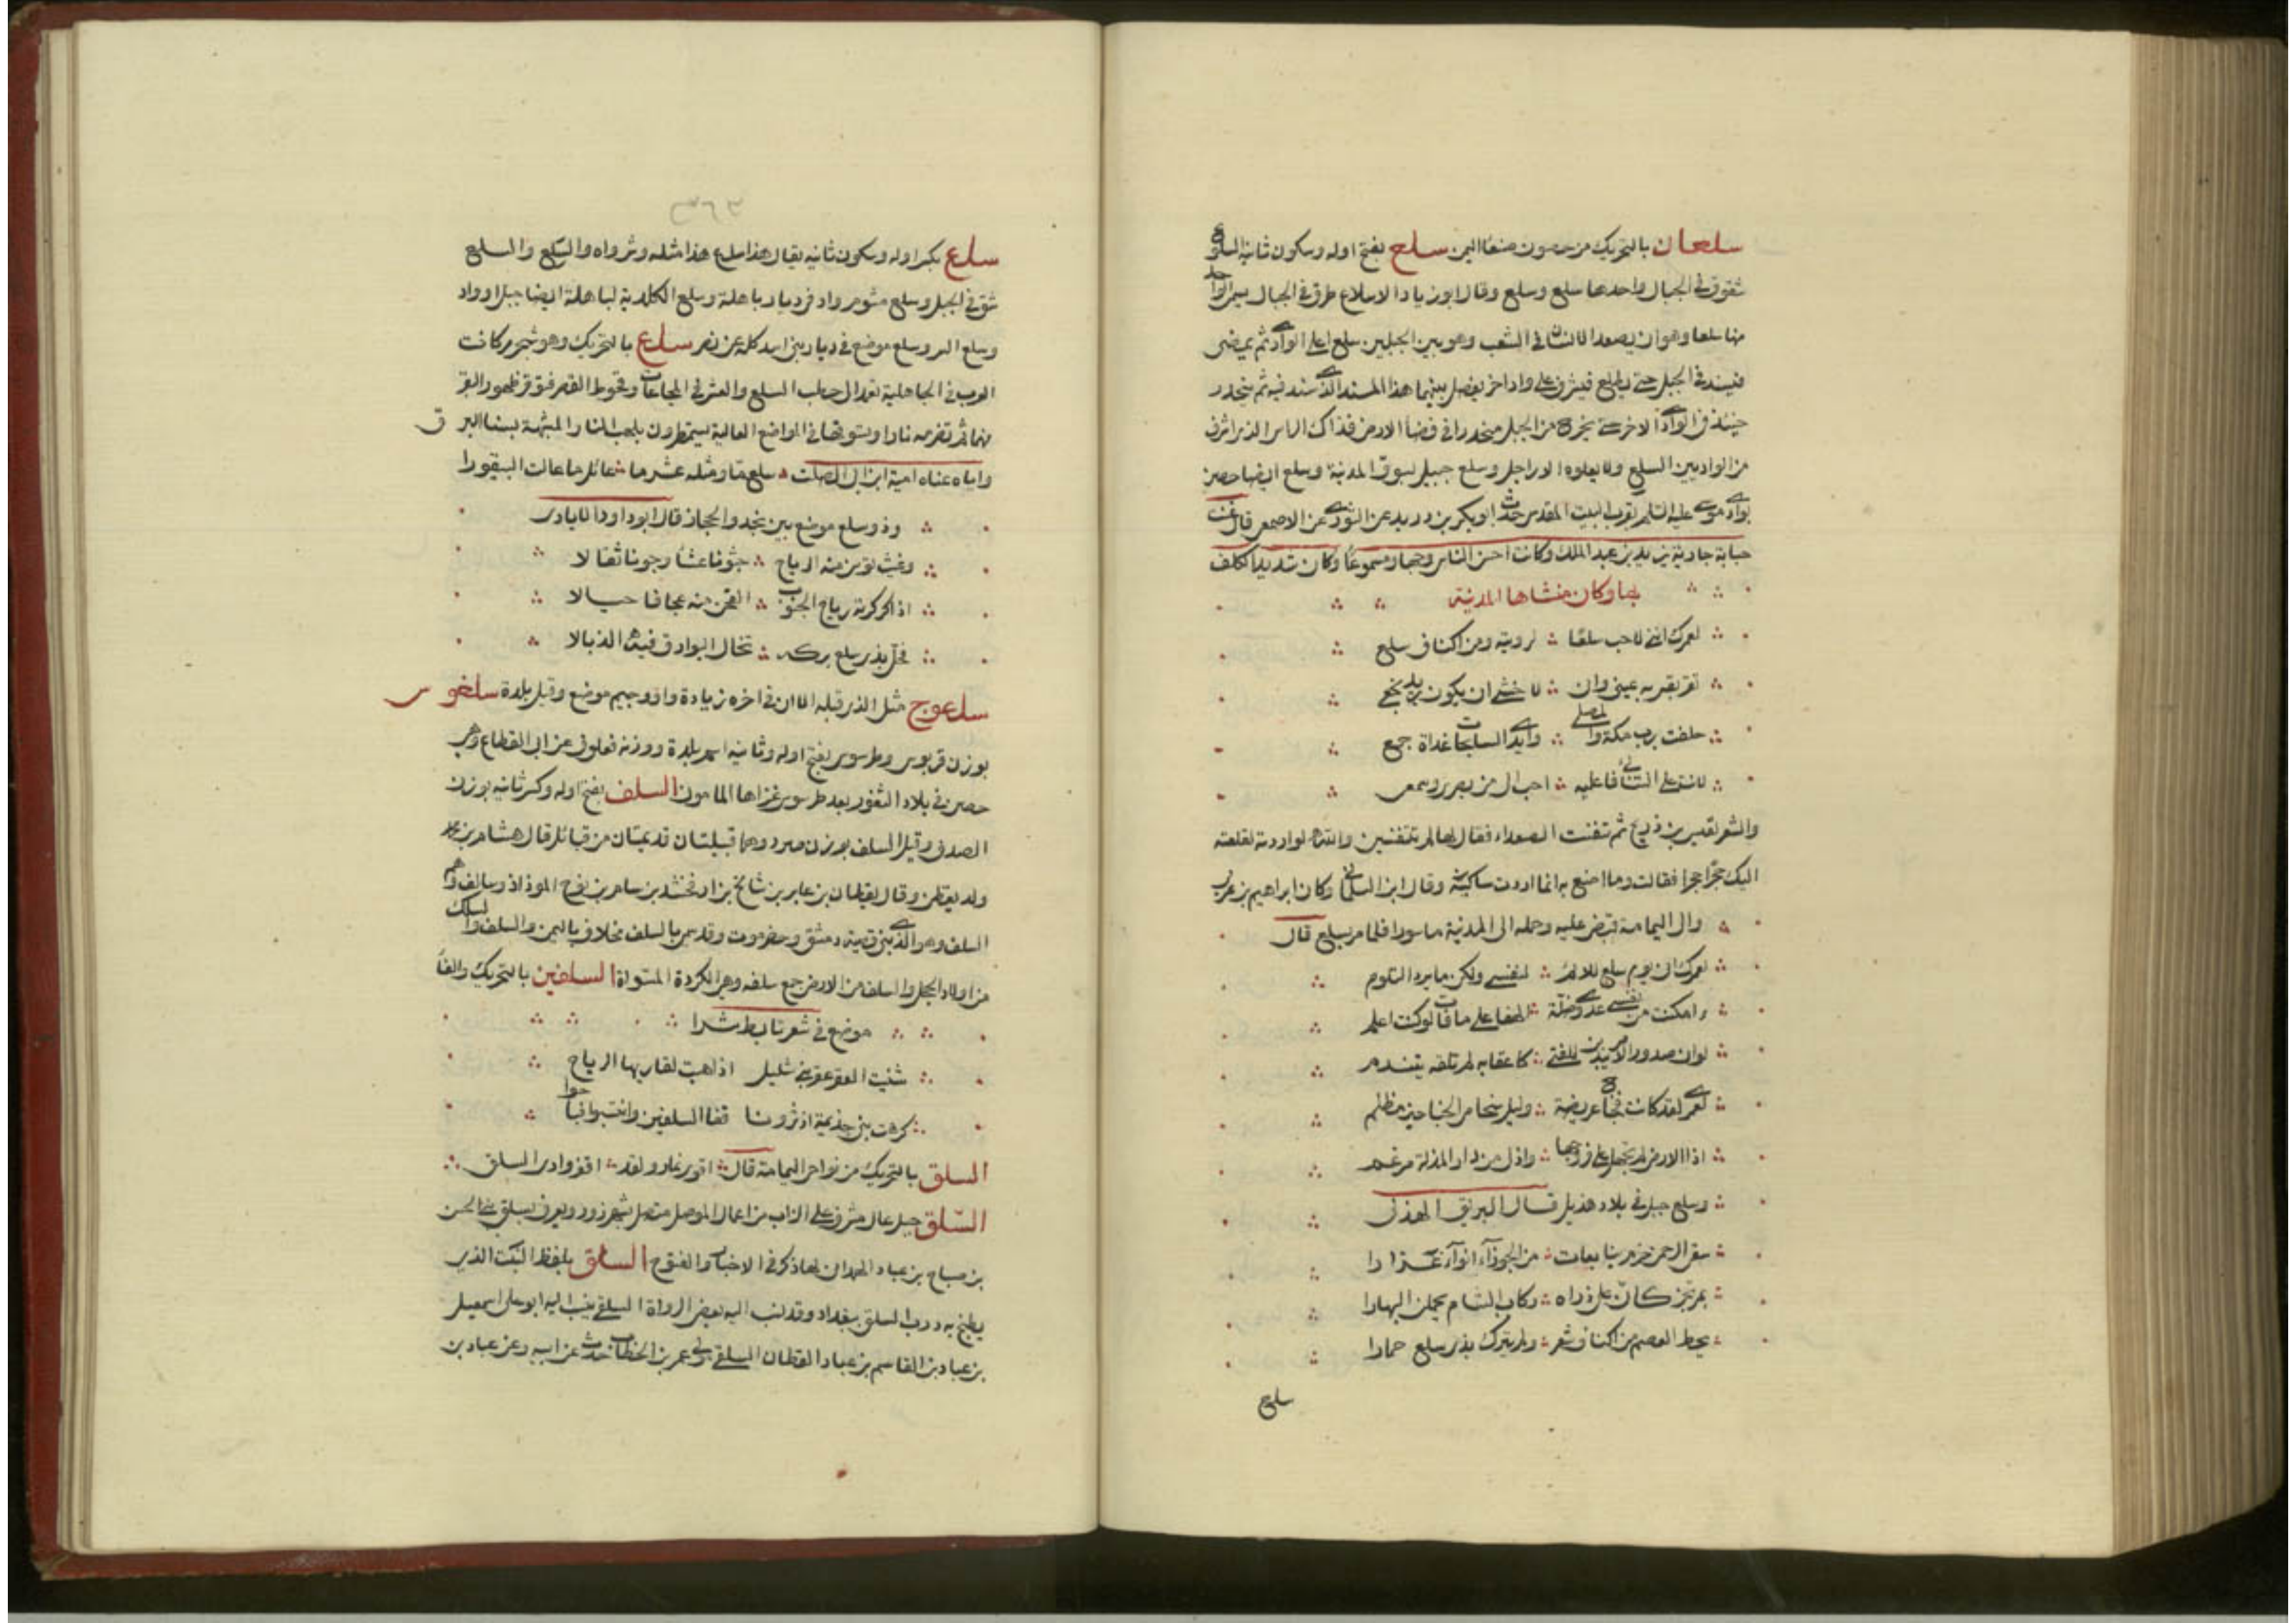 سلعان بالتحريك من حصون صنعا اليمن سلع بفتح اوله وسكون ثانيه السلوع
شقوق في الجبال واحدها سلع وسلع وقال ابو زياد الاسلاع طرق في الجبال يسمى الواحد
منها سلعا وهو ان يصعد الانسان في الشعب وهو بين الجبلين يبلغ اعلى الوادي ثم يمضي
فيسند في الجبل حتى يطلع فيشرف على واد اخر يفصل بينهما هذا المسند الذي سند فيه ثم ينحدر
حينئذ في الوادي الاخر حتى يخرج من الجبل منحدرا في فضا الارض فذاك الراس الذي اشرف
من الواديين السلع ولا يعلوه الا راجل وسلع جبيل بسوق المدينة وسلع ايضا حصن
بوادي موسى عليه السلم بقرب البيت المقدس حدث ابو بكر بن دريد عن الثوري عن الاصمعي قال غنت
حبابة جارية يزيد بن عبد الملك وكانت احسن الناس وجها ومسموعا وكان شديد الكلف
بها وكان منشاها المدينة
لعمرك انني لاحب سلعا لرويته ومن اكناف سلع
تقر بقربه عيني واني لاخشى ان يكون يريد فجعي
حلفت برب مكة والمصلى وايدي السابحات غداة جمع
لانت على التنائي فاعلميه احب الي من بصري وسمعي
والشعر لقيس بن ذريح ثم تنفست الصعداء فقال لها لم تتنفسين والله لو اردته لقلعته
اليك حجرا حجرا فقالت وما اصنع به انما اردت ساكنيه وقال ابن السلماني وكان ابراهيم بن عربي
والي اليمامة قبض عليه وحمله الى المدينة ماسورا فلما مر بسلع قال
لعمرك ان يوم سلع للائم لنفسي ولكن ما يرد التلوم
اامكنت من نفسي عدوي ضلة الهفا على ما فات لو كنت اعلم
لو ان صدور الامر يبدين للفتى كاعقابه لم تلفه يتندم
لعمري لقد كانت فجاج عريضة وليل سخامي الجناحين مظلم
اذ الارض لم تجهل علي فروجها واذ لي من دار المذلة مرغم
وسلع جبل في بلاد هذيل قال البريق الهذلي
سقى الرحمن حزم ينابعات من الجوزآء انوآء غزارا
بمرتجز كان على ذراه ركاب الشام يحملن البهارا
يحط العصم من اكناف شعر ولم يترك بذي سلع حمارا
سلع
٣٦٣
سلع بكسر اوله وسكون ثانيه يقال هذا سلع هذا مثله وشرواه والسلع والسلع
شق في الجبل وسلع موشوم واد في ديار باهلة وسلع الكلدية لباهلة ايضا جبل او واد
وسلع الستر وسلع موضع في ديار بني اسد كله عن نصر سلع بالتحريك وهو شجر مر كانت
العرب في الجاهلية تعمد الى حطب السلع والعشر في المجاعات وقحوط القطر فتوقر ظهور البقر
منهما ثم تضرمه نارا ويسوقها في المواضع العالية يستمطرون بلهب النار المشبهة بسنا البرق
واياه عناه امية ابن ابي الصلت سلع ما ومثله عشر ما عائل ما عالت البيقورا
وذو سلع موضع بين نجد والحجاز قال ابو داود الايادي
وغيث توسن منه الرياح جونا عشارا وجونا ثقالا
اذا كركرته رياح الجنوب القحن منه عجافا حيالا
فحل بذي سلع بركه تخال البوارق فيه الذبالا
سلعوج مثل الذي قبله الا ان في اخره زيادة واو وجيم موضع وقيل بلدة سلغوس
بوزن قربوس وطرسوس بفتح اوله وثانيه اسم بلدة ووزنه فعلول عن ابن القطاع وهي
حصن في بلاد الثغور بعد طرسوس غزاها المامون السلف بفتح اوله وكسر ثانيه بوزن
الصدف وقيل السلف بوزن صرد وهما قبيلتان قديمتان من قبائل قال هشام بن محمد
ولد يقطن وقال يقطان بن عابر بن شالخ بن ارفخشد بن سام بن نوح الموذاذ وسالف وهم
السلف وهو الذي بنى قصبة دمشق وحضرموت وقد سمي بالسلف مخلاف باليمن والسلف والسلك
من اولاد الحجل والسلف من الارض جمع سلفه وهي الكردة المسواة السلفين بالتحريك والفآ
موضع في شعر تابط شرا
شنئت العقر عقر بني شليل اذا هبت لقاريها الرياح
كرهت بني جذيمة اذ ثرونا قفا السلفين وانتسبوا فباحوا
السلق بالتحريك من نواحي اليمامة قال اقوى نمار ولقد اقفر وادي السلق
السلق جبل عال مشرف على الزاب من اعمال الموصل متصل بشهرزور ويعرف بسلق بني الحسن
بن صباح بن عباد الهمداني لها ذكر في الاخبار والفتوح السلق بلفظ النبت الذي
يطبخ به درب السلق ببغداد وقد نسب اليه بعض الرواة السلقي ينسب اليه ابو علي اسمعيل
بن عباد بن القاسم بن عباد القطان السلقي مولى عمر بن الخطاب حدث عن ابيه وعن عباد بن